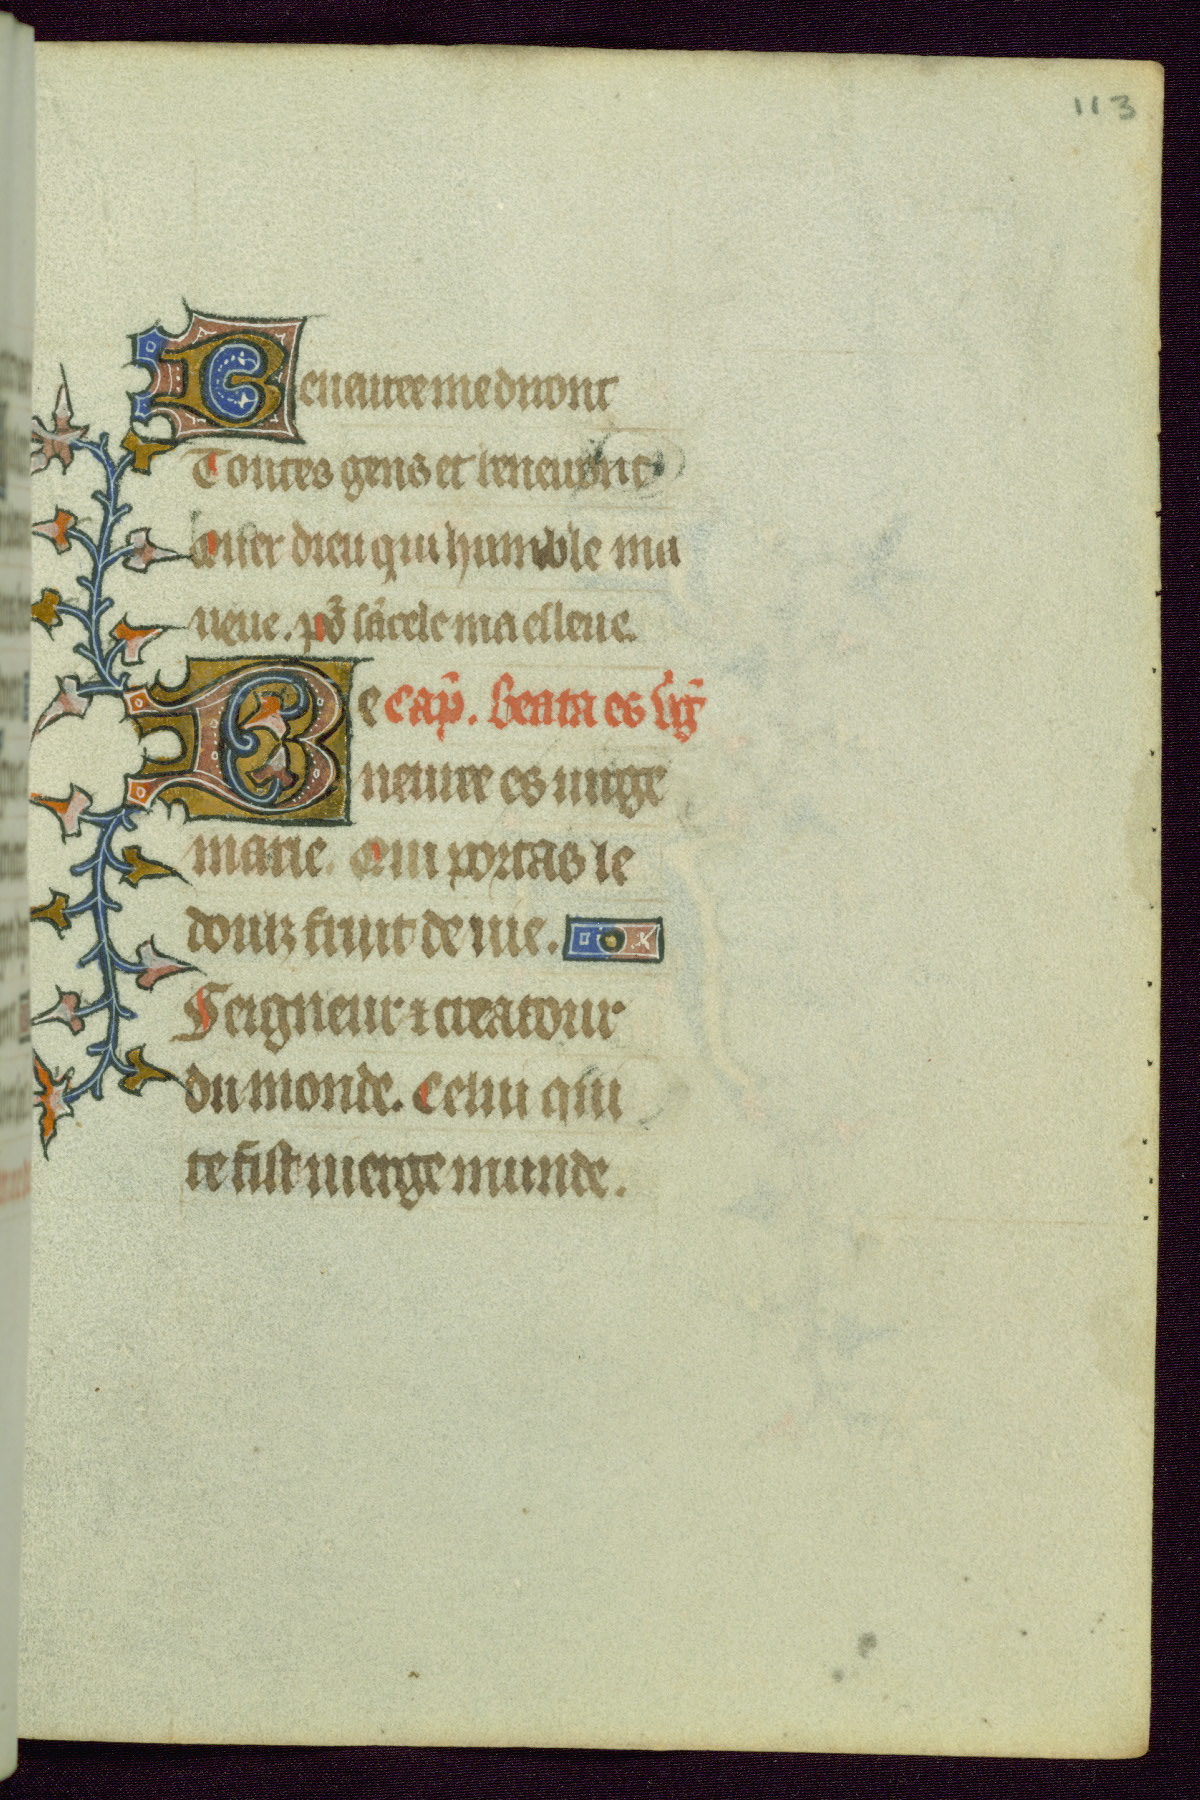 113
Beneuree me diront
Toutes gens et leneuront
Quser dieu qui humble ma
veue. po᷑ sācele ma esleue.
Be Cap̄. Beata es v̄ḡ
neuree es uirge
marie. Qui portas le
doulz fruit de uie.
Seigneur ⁊ creatour
du monde. Celui qui
te fist uierge munde.